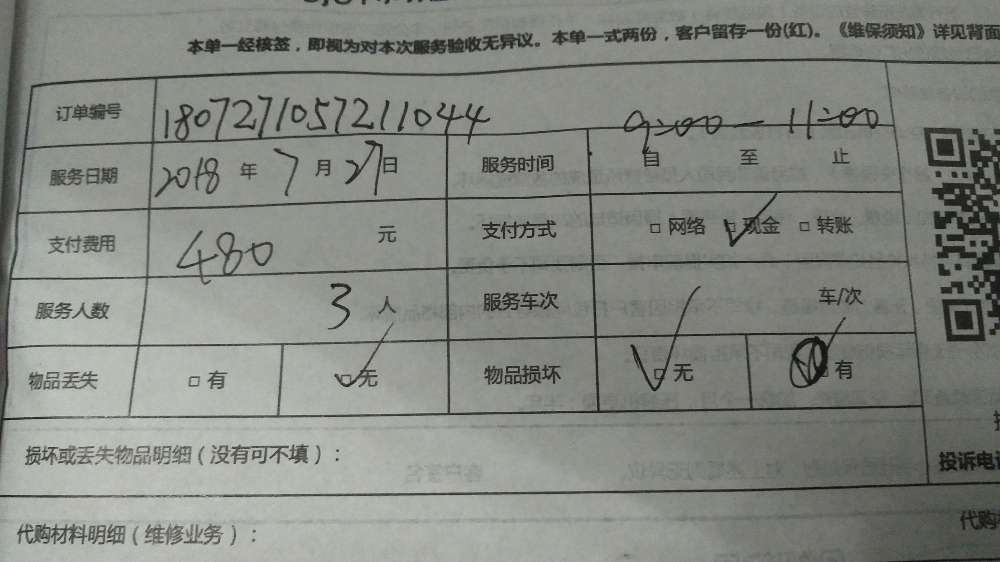 本单一经核签，即视为对本次服务验收无异议。本单一式两份，客户留存一份(红)。《维保须知》详见背面
订单编号 1807271057211044
服务日期 2018 年 7 月 27 日 服务时间 9:00 — 11:00 自 至 止
支付费用 480 元 支付方式 □ 网络 □ 现金 □ 转账
服务人数 3 人 服务车次 车/次
物品丢失 □ 有 □ 无 物品损坏 □ 无 □ 有
损坏或丢失物品明细（没有可不填）：
投诉电
代购材料明细（维修业务）：
代购